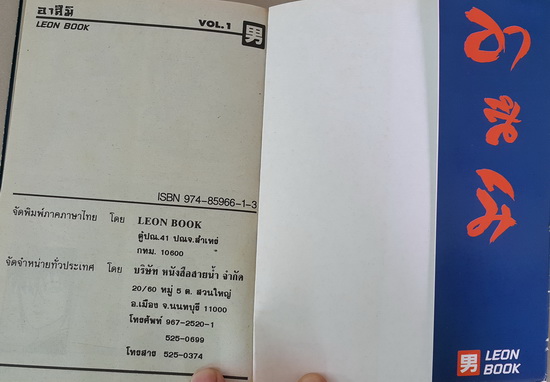 อาสึมิ
LEON BOOK
VOL.1
男
ISBN 974-85966-1-3
จัดพิมพ์ภาคภาษาไทย โดย LEON BOOK
ตู้ปณ.41 ปณจ.สำเหร่
กทม. 10600
จัดจำหน่ายทั่วประเทศ โดย บริษัท หนังสือสายน้ำ จำกัด
20/60 หมู่ 5 ต. สวนใหญ่
อ.เมือง จ.นนทบุรี 11000
โทรศัพท์ 967-2520-1
525-0699
โทรสาร 525-0374
男 LEON
BOOK